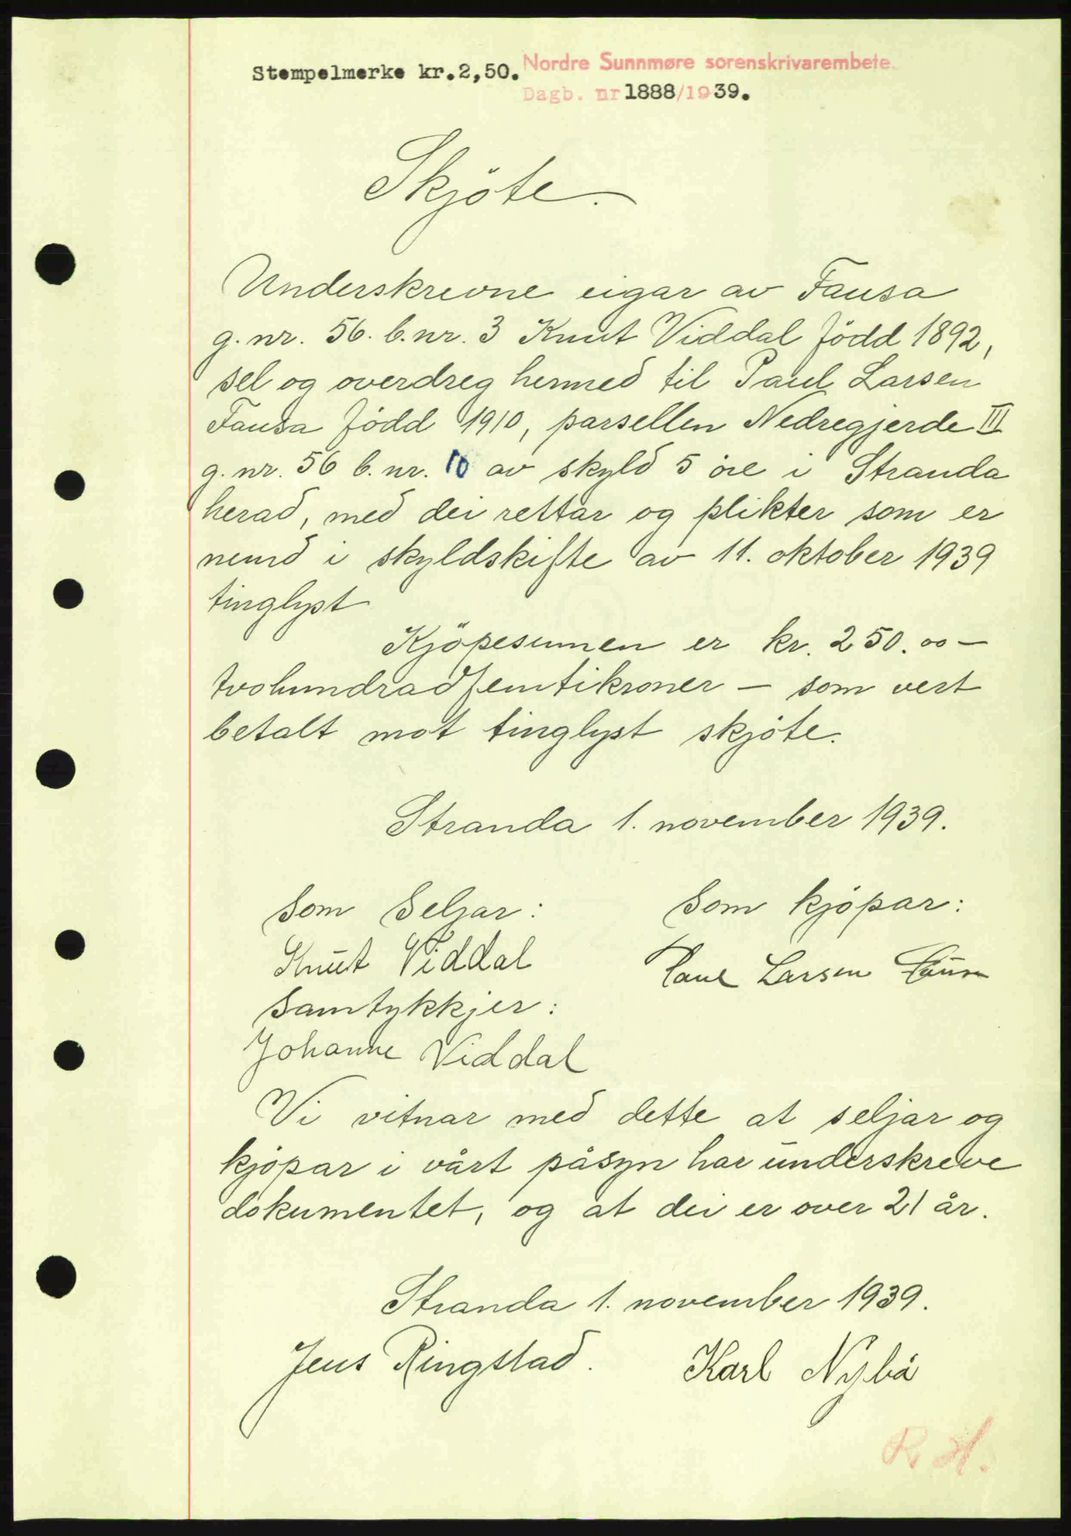 Stempelmerke kr.2,50. Nordre Sunnmøre sorenskrivarembete.
Dagb. nr 1888/1939.
Skjöte.
Underskrevne eigar av Fausa
g. nr. 56. b. nr. 3 Knut Viddal född 1892,
sel og overdreg hermed til Paul Larsen
Fausa född 1910, parsellen Nedregjerde III
g. nr. 56 b. nr. 10 av skyld 5 öre i Stranda
herad, med dei rettar og plikter som er
nemd i skyldskifte av 11. oktober 1939
tinglyst
Kjöpesumen er kr. 250.00 —
tvohundradfemtikroner — som vert
betalt mot tinglyst skjöte.
Stranda 1. november 1939.
Som Seljar: Som kjöpar:
Knut Viddal Paul Larsen Fausa
Samtykkjer:
Johanne Viddal
Vi vitnar med dette at seljar og
kjöpar i vårt påsyn har underskreve
dokumentet, og at dei er over 21 år.
Stranda 1. november 1939.
Jens Ringstad. Karl Nybö
R. H.